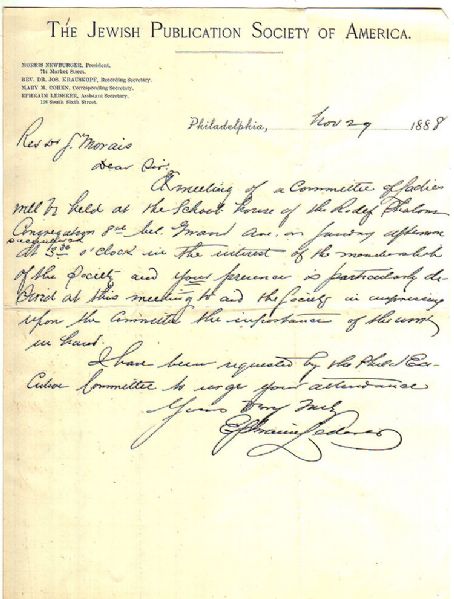 THE JEWISH PUBLICATION SOCIETY OF AMERICA.
MORRIS NEWBURGER, President,
714 Market Street.
REV. DR. JOS. KRAUSKOPF, Recording Secretary.
MARY M. COHEN, Corresponding Secretary.
EPHRAIM LEDERER, Assistant Secretary.
Philadelphia, Nov 29 1888
Rev Dr J. Morais
Dear Sir,
A meeting of a Committee of ladies
will be held at the School house of the Rodef Shalom
Congregation 8th bel. Girard Ave. on Sunday afternoon
at 3:30 o'clock in the interest of the membership
of the Society and your presence is particularly de-
sired at this meeting to aid the Society in impressing
upon the Committee the importance of the work
in hand.
I have been requested by the Phila Exe-
cutive Committee to urge your attendance
Yours Very Truly
Ephraim Lederer